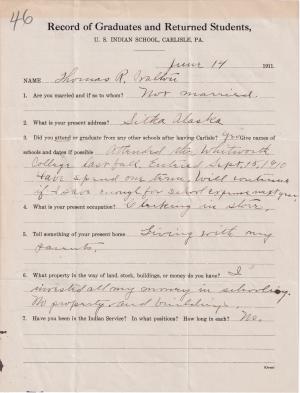 46
Record of Graduates and Returned Students,
U. S. INDIAN SCHOOL, CARLISLE, PA.
June 14 1911.
NAME Thomas R. Walton
1. Are you married and if so to whom? Not married.
2. What is your present address? Sitka Alaska
3. Did you attend or graduate from any other schools after leaving Carlisle? Yes Give names
of schools and dates if possible Attended the Whitworth
College last fall. Entered Sept. 15, 1910
Have spend one term. Will continue
if I save enough for school expense next year.
4. What is your present occupation? Clerking in store.
5. Tell something of your present home Living with my
parents.
6. What property in the way of land, stock, buildings, or money do you have? I
invested all my money in schooling.
No property and building.
7. Have you been in the Indian Service? In what positions? How long in each? No.
(Over)